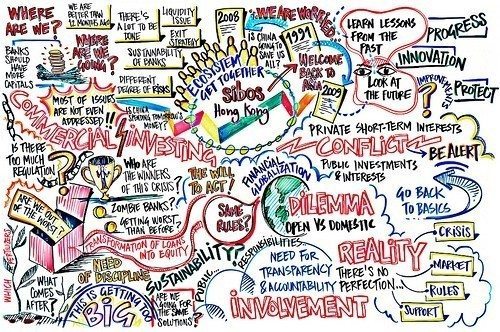 WHERE
ARE WE?
WE ARE
BETTER THAN
12 MONTHS AGO
THERE'S
A LOT TO
BE DONE
LIQUIDITY
ISSUE
EXIT
STRATEGY
BANKS
SHOULD
HAVE
MORE
CAPITALS
WHERE
ARE WE
GOING?
SUSTAINABILITY
OF BANKS
DIFFERENT
DEGREE OF RISKS
MOST OF ISSUES
ARE NOT EVEN
ADDRESSED!!
IS CHINA
SPENDING TOMORROW'S
MONEY?
2008
WE ARE WORRIED
IS CHINA
GOING TO
SAVE US
ALL?
1991
WELCOME
BACK TO
ASIA
2009
ECOSYSTEM
GET TOGETHER
sibos
Hong Kong
LEARN LESSONS
FROM THE
PAST
LOOK AT
THE FUTURE
PROGRESS
INNOVATION
IMPROVEMENTS
?
PROTECT
COMMERCIAL
INVESTING
PRIVATE SHORT-TERM INTERESTS
CONFLICT
PUBLIC INVESTMENTS
& INTERESTS
BE ALERT
IS THERE
TOO MUCH
REGULATION?
WHO ARE
THE WINNERS
OF THIS CRISIS?
THE WILL
TO ACT!
FINANCIAL
GLOBALIZATION
ARE WE OUT
OF THE WORST?
ZOMBIE BANKS?
GETTING WORST
THAN BEFORE?
SAME
RULES?
DILEMMA
OPEN VS DOMESTIC
GO BACK
TO BASICS
TRANSFORMATION OF LOANS
INTO EQUITY
WHICH
WHAT
COMES
AFTER?
NEED OF
DISCIPLINE
SUSTAINABILITY?
PUBLIC...
RESPONSIBILITIES
NEED FOR
TRANSPARENCY
& ACCOUNTABILITY
INVOLVEMENT
REALITY
THERE'S NO
PERFECTION...
CRISIS
MARKET
RULES
SUPPORT
THIS IS GETTING TOO
BIG
ARE WE
GOING FOR
THE SAME
SOLUTIONS?